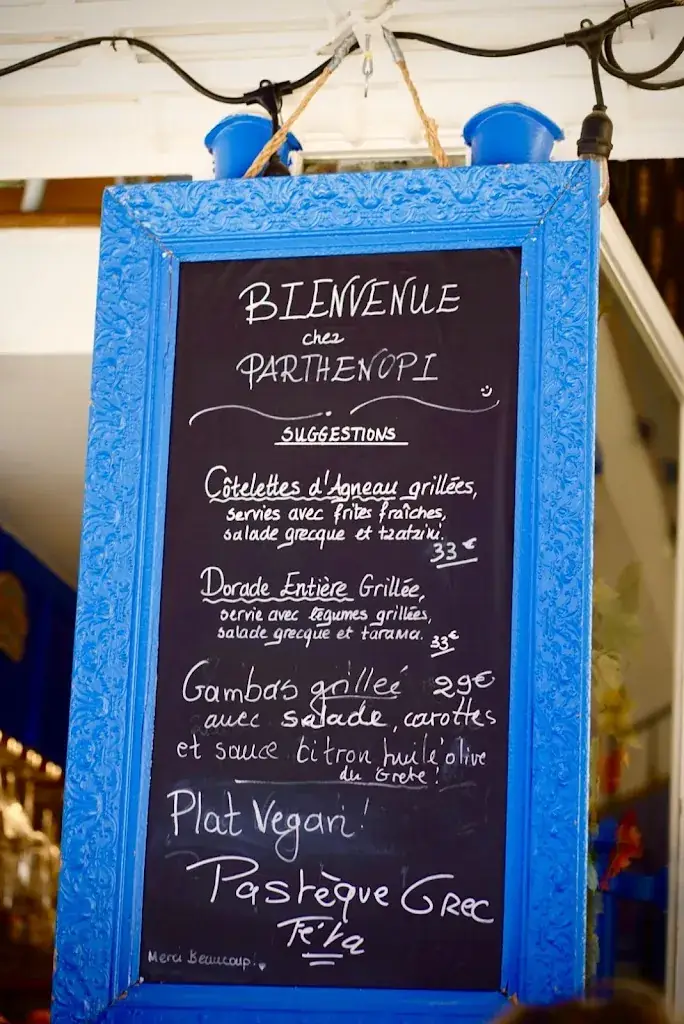 BIENVENUE
chez
PARTHENOPI
SUGGESTIONS
Côtelettes d'Agneau grillées,
servies avec frites fraîches,
salade grecque et tzatziki.
33 €
Dorade Entière Grillée,
servie avec légumes grillées,
salade grecque et tarama. 33€
Gambas grilleé 29€
avec salade, carottes
et sauce citron huile'olive
du Grete !
Plat Vegan !
Pastèque Grec
Féta
Merci Beaucoup!